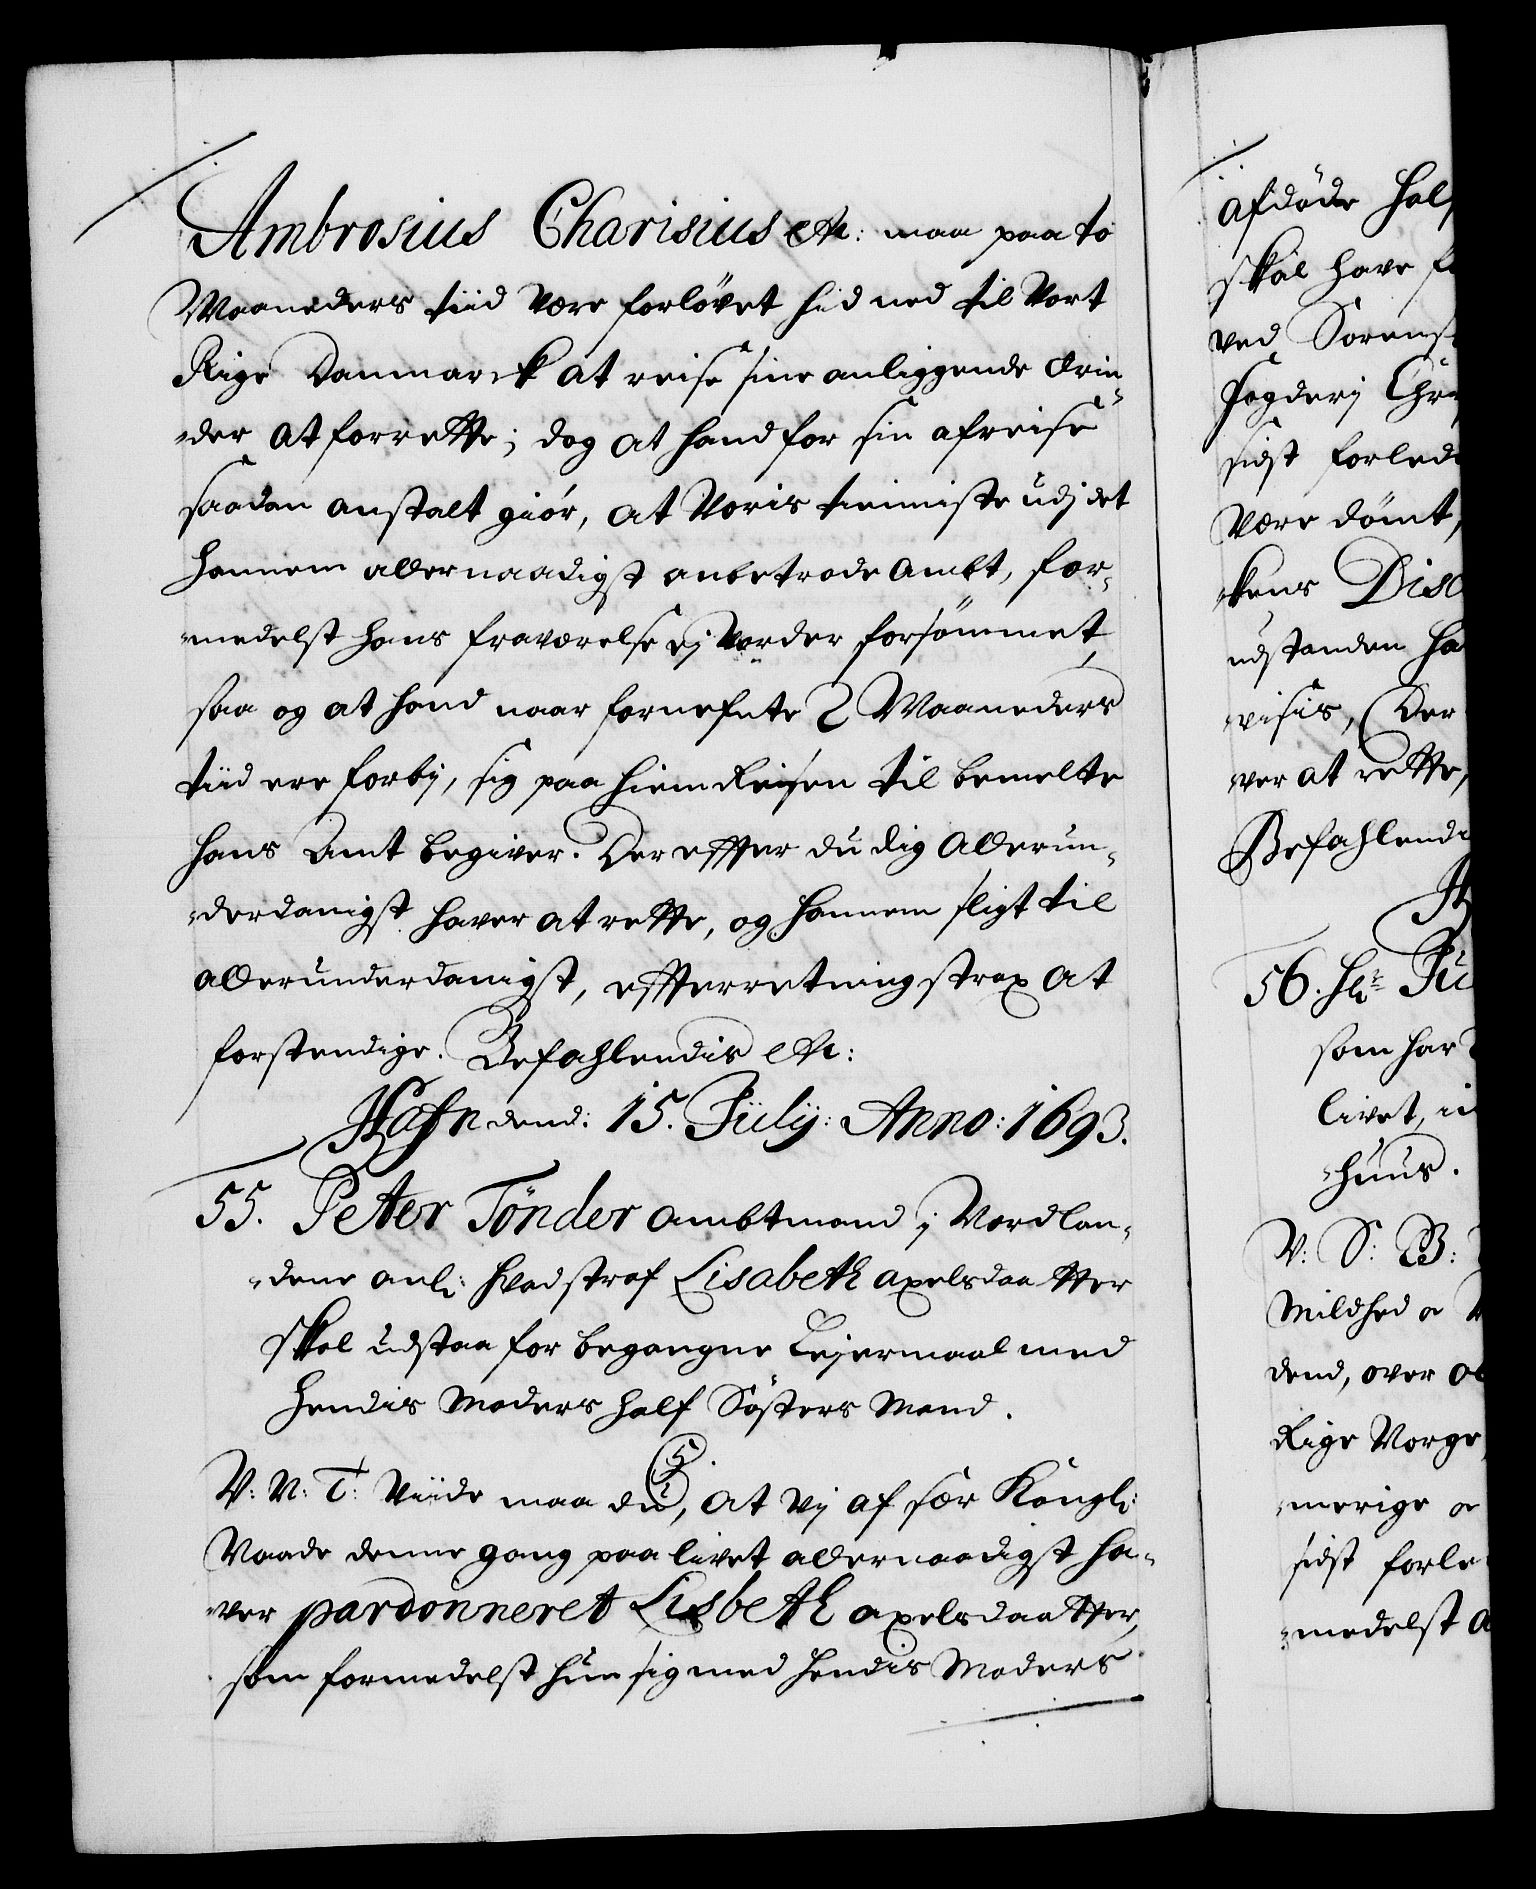 Ambrosius Charisius etc: maa paa to
Maaneders tiid være forløvet hid ned til Vort
Rige Danmarck at reise sine anliggende Ærin-
-der at forrette; dog at hand for sin afreise
saadan anstalt giör, at Voris tienniste udj det
hannem allernaadigst anbetrode Ambt, for-
-medelst hans fraværelse ej vorder forsömmet,
saa og at hand naar fornefnte 2 Maaneders
tiid ere forbj, sig paa hiem Reisen til bemelte
hans Amt begiver. Der effter du dig Allerun-
-derdanigst haver at rette, og hannem sligt til
allerunderdanigst, effterretning strax at
forstendige. Befahlendis etc:
Hafn dend: 15. Julij: Anno: 1693.
55. Peter Tönder Ambtmand j Nordlan-
-dene anl: hvad straf Lisabeth Axelsdaatter
skal udstaa for begangne Lejermaal med
hendis Moders half Søsters Mand.
5
V: N: T: Viide maa du, at Vj af sær Kongl:
Naade denne gang paa livet allernaadigst ha-
-ver pardonneret Lisbeth Axelsdaatter,
som formedelst hun sig med hendis Moders
afdøde hal
skal have
ved Sorens
fogderj Chr
sidst forled
være dömt,
-kens Disc
udstanden ha
-visis, Der
-ver at rette,
Befahlend
H
56. Hr:
som har
livet, i
-huus.
V: S: B:
Mildhed
dend, over
Rige Norge
-merige
sidst forle
-medelst